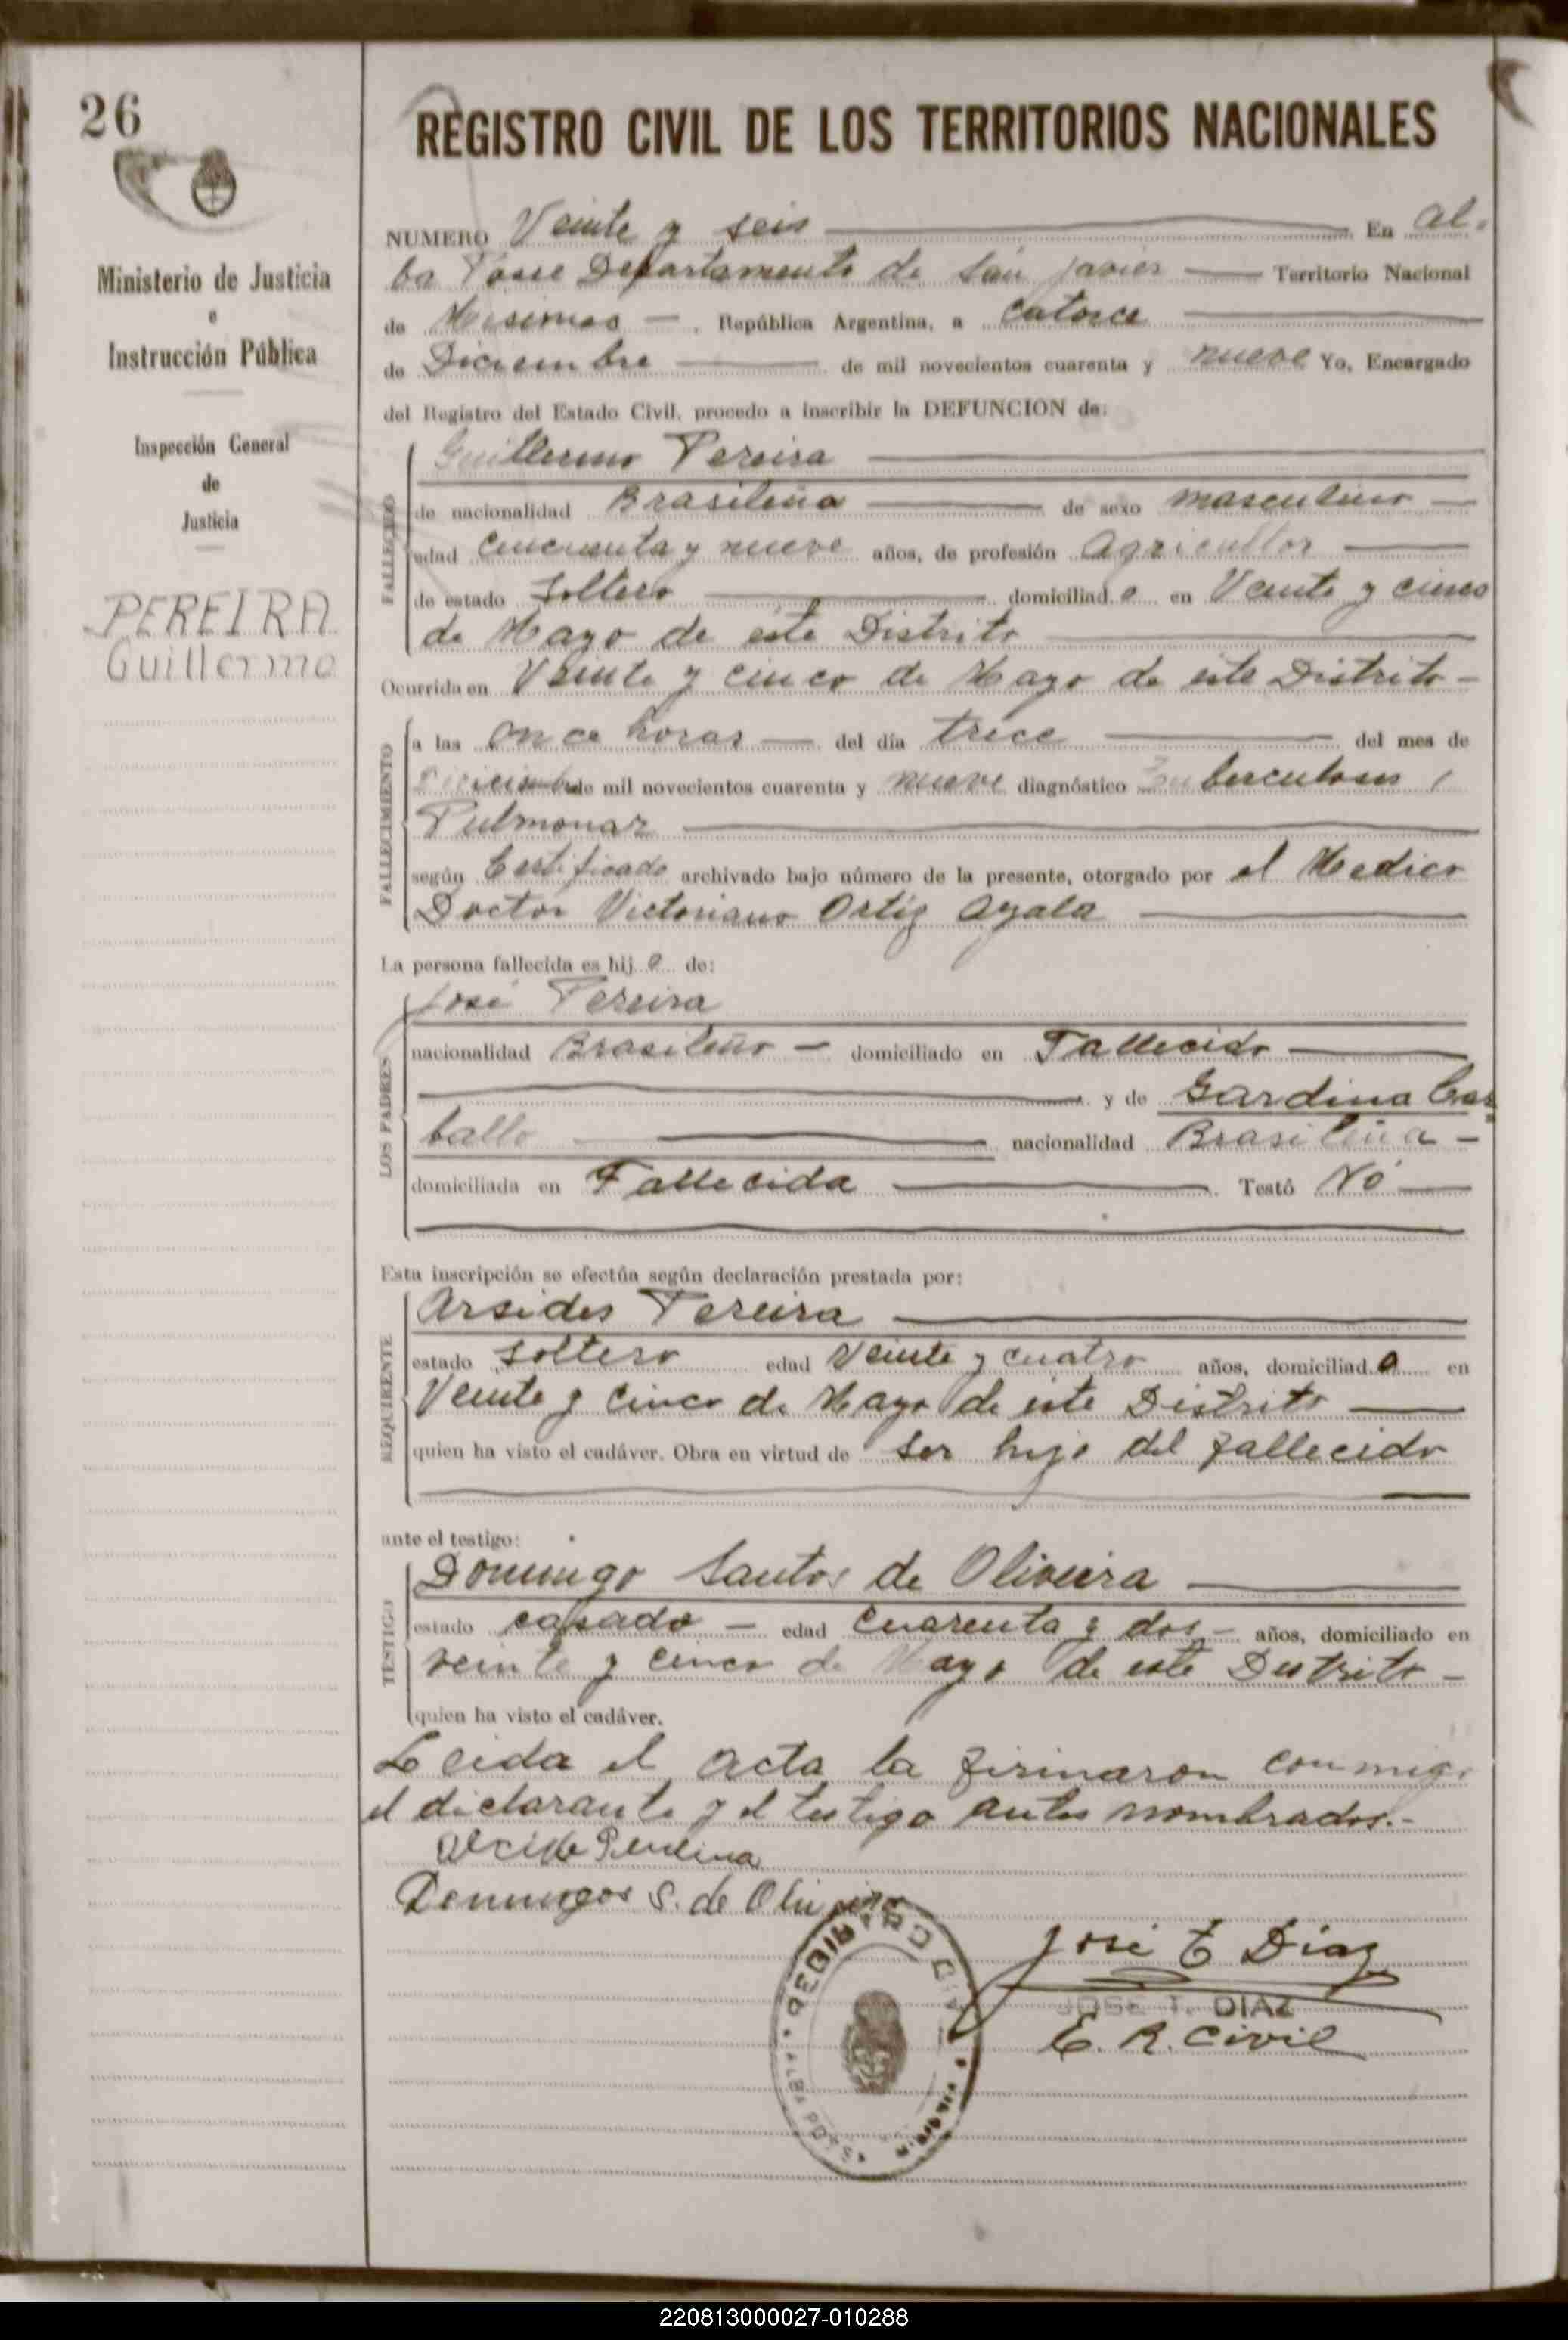 26
REGISTRO CIVIL DE LOS TERRITORIOS NACIONALES
Ministerio de Justicia
e
Instrucción Pública
Inspección General
de
Justicia
PEREIRA
Guillermo
NUMERO Veinte y seis En Al-
ba Posse Departamento de San Javier Territorio Nacional
de Misiones, República Argentina, a catorce
de Diciembre de mil novecientos cuarenta y nueve Yo, Encargado
del Registro del Estado Civil, procedo a inscribir la DEFUNCION de:
FALLECIDO
Guillermo Pereira
de nacionalidad Brasileña de sexo masculino
edad Cincuenta y nueve años, de profesión Agricultor
de estado Soltero domiciliado en Veinte y cinco
de Mayo de este Distrito
Ocurrida en Veinte y cinco de Mayo de este Distrito -
FALLECIMIENTO
a las once horas del día trece del mes de
Diciembre de mil novecientos cuarenta y nueve diagnóstico Tuberculosis
Pulmonar
según Certificado archivado bajo número de la presente, otorgado por el Medico
Doctor Victoriano Ortiz Ayala
La persona fallecida es hijo de:
LOS PADRES
José Pereira
nacionalidad Brasileño - domiciliado en Fallecido
y de Gardina Car-
ballo nacionalidad Brasileña -
domiciliada en Fallecida Testó No
Esta inscripción se efectúa según declaración prestada por:
REQUIRENTE
Arsides Pereira
estado Soltero edad Veinte y cuatro años, domiciliado en
Veinte y Cinco de Mayo de este Distrito
quien ha visto el cadáver. Obra en virtud de ser hijo del fallecido
ante el testigo:
TESTIGO
Domingo Santos de Oliveira
estado casado - edad Cuarenta y dos - años, domiciliado en
veinte y cinco de Mayo de este Distrito -
quien ha visto el cadáver.
Leida el acta la firmaron conmigo
el declarante y el testigo antes nombrados.-
Domingos S. de Oliveira
REGISTRO CIVIL
José T Diaz
JOSE T. DIAZ
E. R. Civil
220813000027-010288